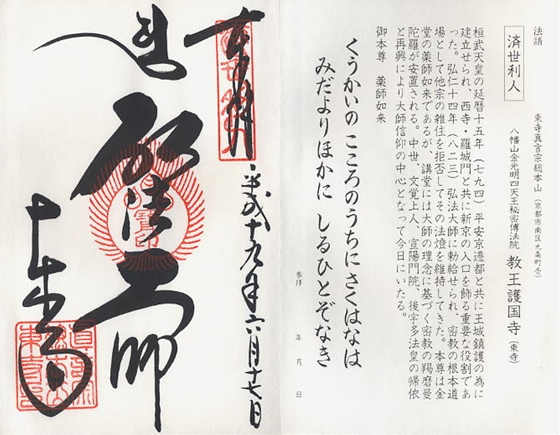 法語
済世利人
東寺真言宗総本山（京都市南区九条町壱）
八幡山金光明四天王秘密傳法院 教王護国寺（東寺）
桓武天皇の延暦十五年（七九四）平安京遷都と共に王城鎮護の為に
建立せられ、西寺・羅城門と共に新京の入口を飾る重要な役割であ
った。弘仁十四年（八二三）弘法大師に勅給せられ、密教の根本道
場として他宗の雑住を拒否してその法燈を維持してきた。本尊は金
堂の薬師如来であるが、講堂には大師の理念に基づく密教の羯磨曼
陀羅が安置される。中世、文覚上人、宣陽門院、後宇多法皇の帰依
と再興により大師信仰の中心となって今日にいたる。
御本尊 薬師如来
くうかいの こころのうちにさくはなは
みだよりほかに しるひとぞなき
参拝 年 月 日
平成十九年六月十七日
弘法大師